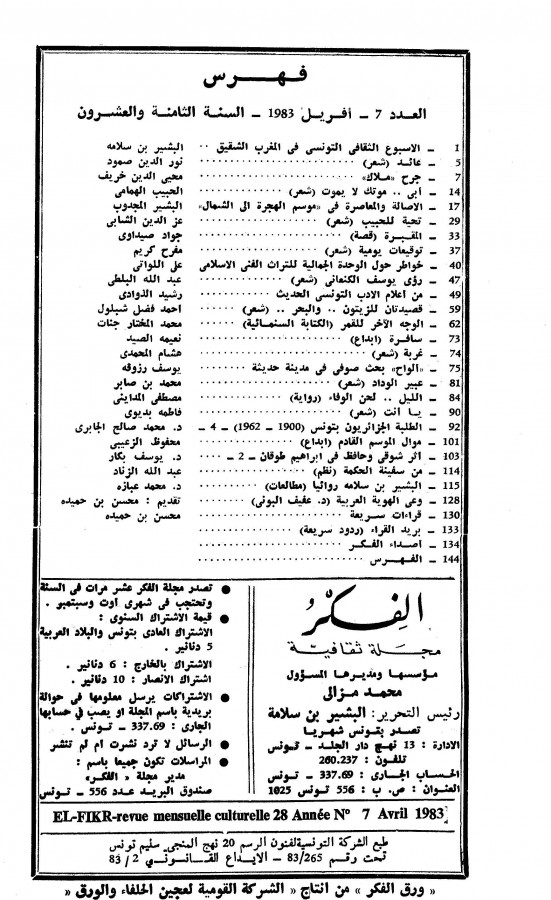 فهــرس
العدد 7 – أفريل 1983 – السنة الثامنة والعشرون
1 – الاسبوع الثقافى التونسى فى المغرب الشقيق .. البشير بن سلامه
5 – عائد (شعر) .......... نور الدين صمود
7 – جرح «ملاك» .......... محيى الدين خريف
14 – أبى .. موتك لا يموت (شعر) .......... الحبيب الهمامى
17 – الاصالة والمعاصرة فى «موسم الهجرة الى الشمال» البشير المجدوب
29 – تحية للحبيب (شعر) .......... عز الدين الشابى
33 – المقبرة (قصة) .......... جواد صيداوى
37 – توقيعات يومية (شعر) .......... مفرح كريم
40 – خواطر حول الوحدة الجمالية للتراث الفنى الاسلامى على اللواتى
47 – رؤى يوسف الكنعانى (شعر) .......... عبد الله البلطى
49 – من أعلام الادب التونسى الحديث .......... رشيد الذوادى
59 – قصيدتان للزيتون .. والبحر .. (شعر) .......... احمد فضل شبلول
62 – الوجه الآخر للقمر (الكتابة السنمائية) .......... محمد المختار جنات
73 – سافرة (ابداع) .......... نعيمه الصيد
74 – غربة (شعر) .......... هشام المحمدى
75 – «الواح» بحث صوفى فى مدينة حديثة .......... يوسف رزوقه
81 – عبير الوداد (شعر) .......... محمد بن صابر
84 – الليل .. لحن الوفاء (رواية) .......... مصطفى المداينى
90 – يا أنت (شعر) .......... فاطمه بديوى
92 – الطلبة الجزائريون بتونس (1900 – 1962) – 4 – د. محمد صالح الجابرى
101 – موال الموسم القادم (ابداع) .......... محفوظ الزعيبى
103 – أثر شوقى وحافظ فى ابراهيم طوقان – 2 – .... د. يوسف بكار
114 – من سفينة الحكمة (نظم) .......... عبد الله الزناد
115 – البشير بن سلامه روائيا (مطالعات) .......... د. محمد عبازه
128 – وعى الهوية العربية (د. عفيف البونى) .......... تقديم : محسن بن حميده
130 – قراءات سريعة .......... محسن بن حميده
133 – بريد القراء (ردود سريعة) ..........
134 – أصداء الفكر ..........
144 – الفهرس ..........
الفكر
مجلة ثقافية
مؤسسها ومديرها المسؤول
محمد مزالى
رئيس التحرير: البشير بن سلامة
تصدر بتونس شهريا
الادارة : 13 نهج دار الجلد – تونس
تلفون : 260.237
الحساب الجارى : 337.69 – تونس
العنوان : ص. ب : 556 تونس 1025
● تصدر مجلة الفكر عشر مرات فى السنة
وتحتجب فى شهرى أوت وسبتمبر .
● قيمة الاشتراك السنوى :
الاشتراك العادى بتونس والبلاد العربية
5 دنانير .
الاشتراك بالخارج : 6 دنانير .
اشتراك الانصار : 10 دنانير .
● الاشتراكات يرسل معلومها فى حوالة
بريدية باسم المجلة او يصب فى حسابها
الجارى : 337.69 – تونس .
● الرسائل لا ترد نشرت ام لم تنشر
● المراسلات تكون جميعا باسم :
مدير مجلة « الفكر»
صندوق البريد عدد 556 – تونس
EL-FIKR-revue mensuelle culturelle 28 Année Nº 7 Avril 1983
طبع الشركة التونسية لفنون الرسم 20 نهج المنجى سليم تونس
تحت رقم 83/265 – الايداع القانونى 2 / 83
« ورق الفكر » من انتاج « الشركة القومية لعجين الحلفاء والورق »